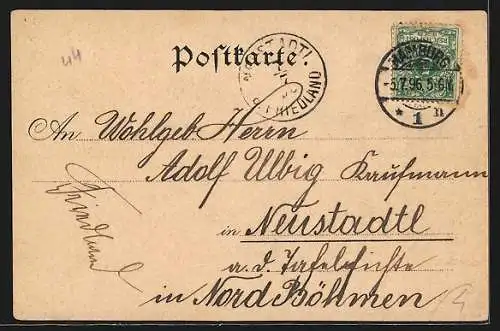 44
Postkarte.
NEUSTADTL
FRIEDLAND
HAMBURG
-5.7.96.5-6N
* 1 n
An Wohlgeb. Herrn
Adolf Ulbig Kaufmann
in Neustadtl
a. d. Tafelfichte
in Nord Böhmen
Friedland